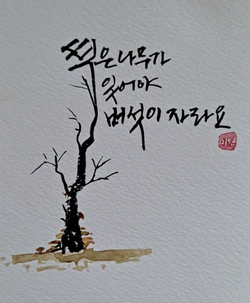 썩은나무가
있어야
버섯이 자라요